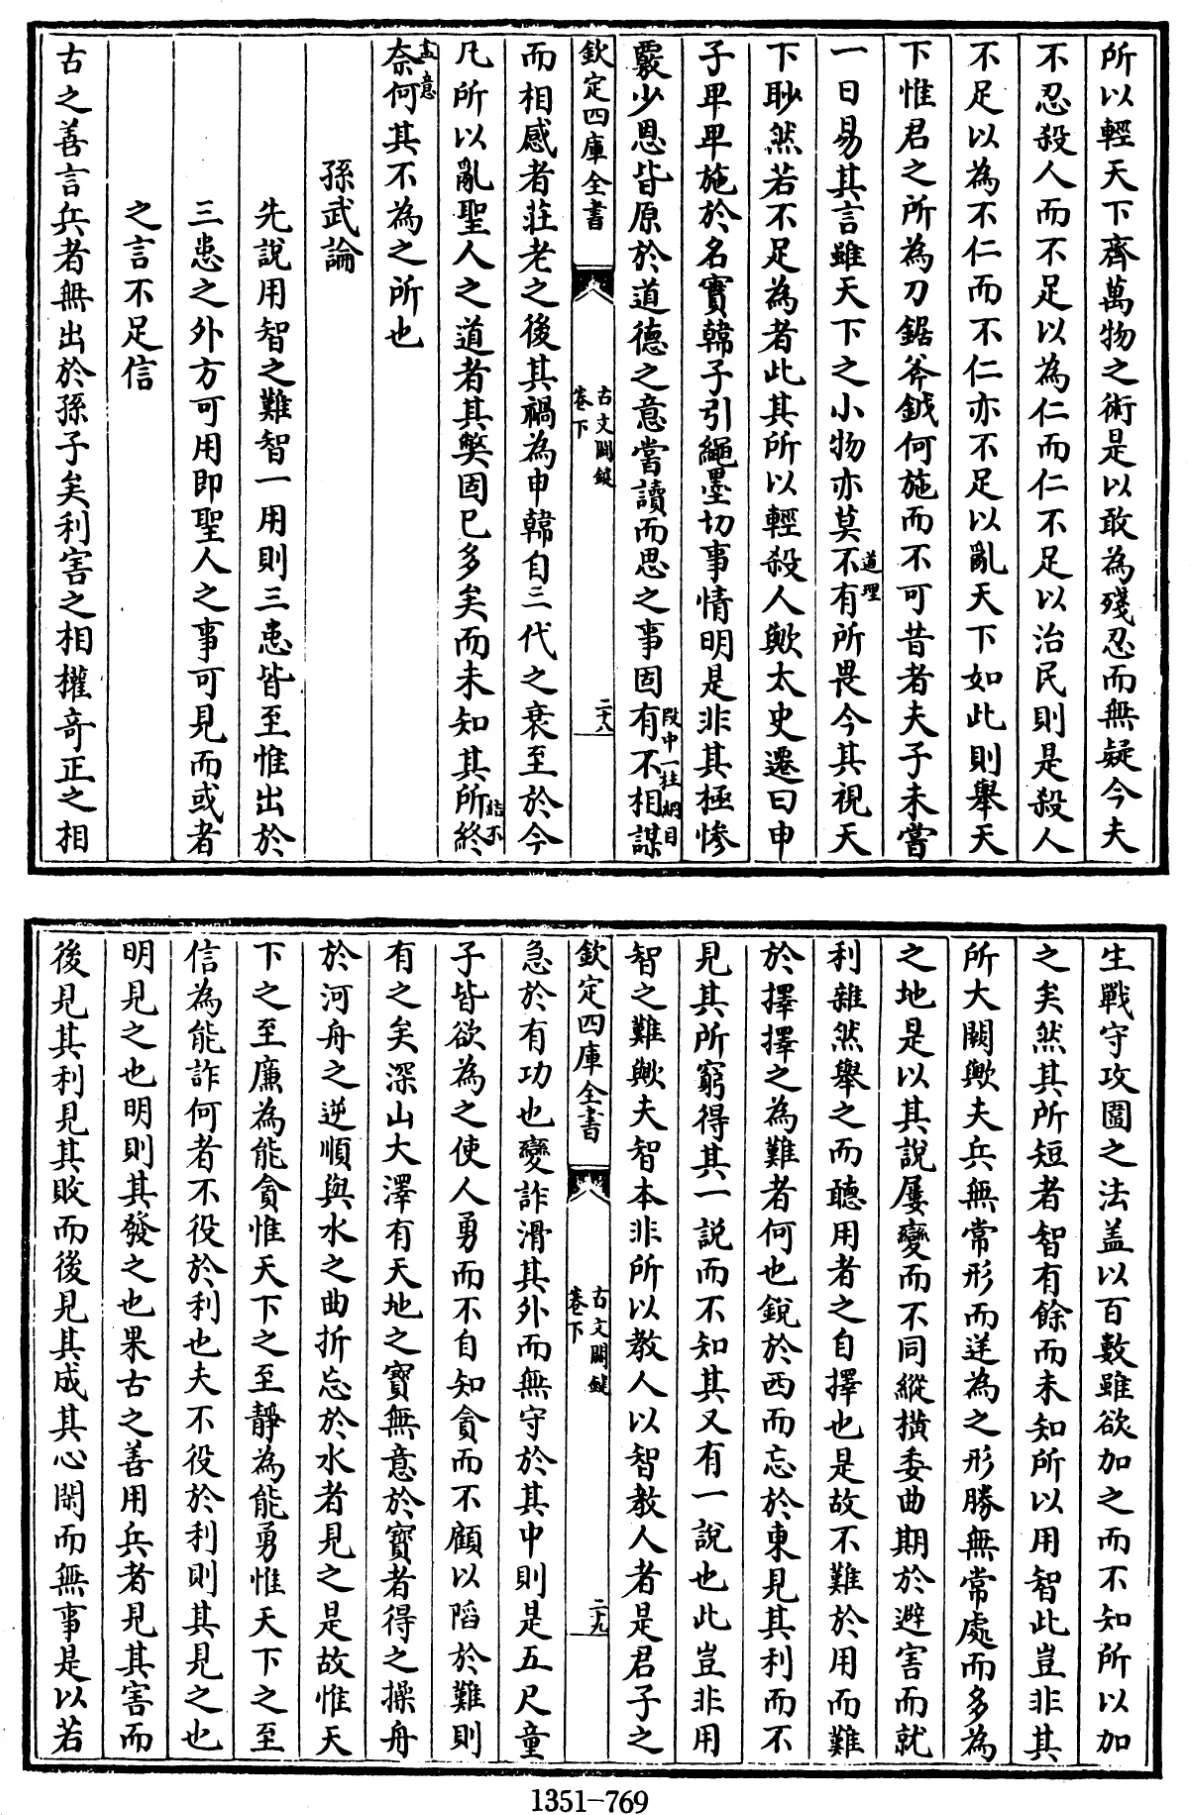 所以輕天下齊萬物之術是以敢為殘忍而無疑今夫
不忍殺人而不足以為仁而仁不足以治民則是殺人
不足以為不仁而不仁亦不足以亂天下如此則舉天
下惟君之所為刀鋸斧鉞何施而不可昔者夫子未嘗
一日易其言雖天下之小物亦莫不有所畏今其視天
道理
下眇然若不足為者此其所以輕殺人歟太史遷曰申
子卑卑施於名實韓子引繩墨切事情明是非其極慘
覈少恩皆原於道德之意嘗讀而思之事固有不相謀
段中一柱綱目
欽定四庫全書
古文關鍵
卷下
二十八
而相感者莊老之後其禍為申韓自三代之衰至於今
凡所以亂聖人之道者其弊固已多矣而未知其所終
結不
盡意
奈何其不為之所也
孫武論
先說用智之難智一用則三患皆至惟出於
三患之外方可用即聖人之事可見而或者
之言不足信
古之善言兵者無出於孫子矣利害之相權奇正之相
生戰守攻圍之法盖以百數雖欲加之而不知所以加
之矣然其所短者智有餘而未知所以用智此豈非其
所大闕歟夫兵無常形而逆為之形勝無常處而多為
之地是以其說屢變而不同縱橫委曲期於避害而就
利雜然舉之而聽用者之自擇也是故不難於用而難
於擇擇之為難者何也銳於西而忘於東見其利而不
見其所窮得其一說而不知其又有一說也此豈非用
智之難歟夫智本非所以教人以智教人者是君子之
欽定四庫全書
古文關鍵
卷下
二十九
急於有功也變詐滑其外而無守於其中則是五尺童
子皆欲為之使人勇而不自知貪而不顧以陷於難則
有之矣深山大澤有天地之寶無意於寶者得之操舟
於河舟之逆順與水之曲折忘於水者見之是故惟天
下之至廉為能貪惟天下之至靜為能勇惟天下之至
信為能詐何者不役於利也夫不役於利則其見之也
明見之也明則其發之也果古之善用兵者見其害而
後見其利見其敗而後見其成其心閑而無事是以若
1351-769